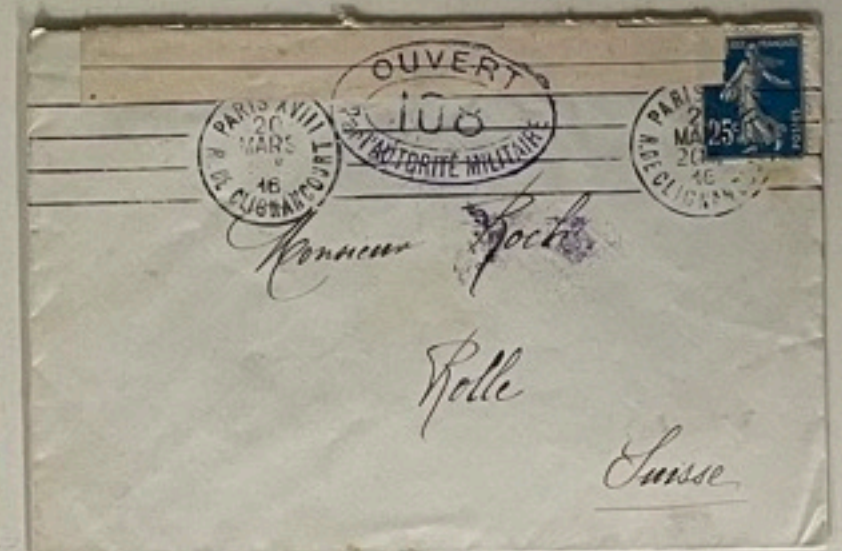 OUVERT
108
Par l'AUTORITÉ MILITAIRE
PARIS XVIII
20
MARS
16
R. DE CLIGNANCOURT
PARIS
MA
20
16
R. DE CLIGNAN
FRANÇAISE
25c
POSTES
Monsieur Roch
Rolle
Suisse